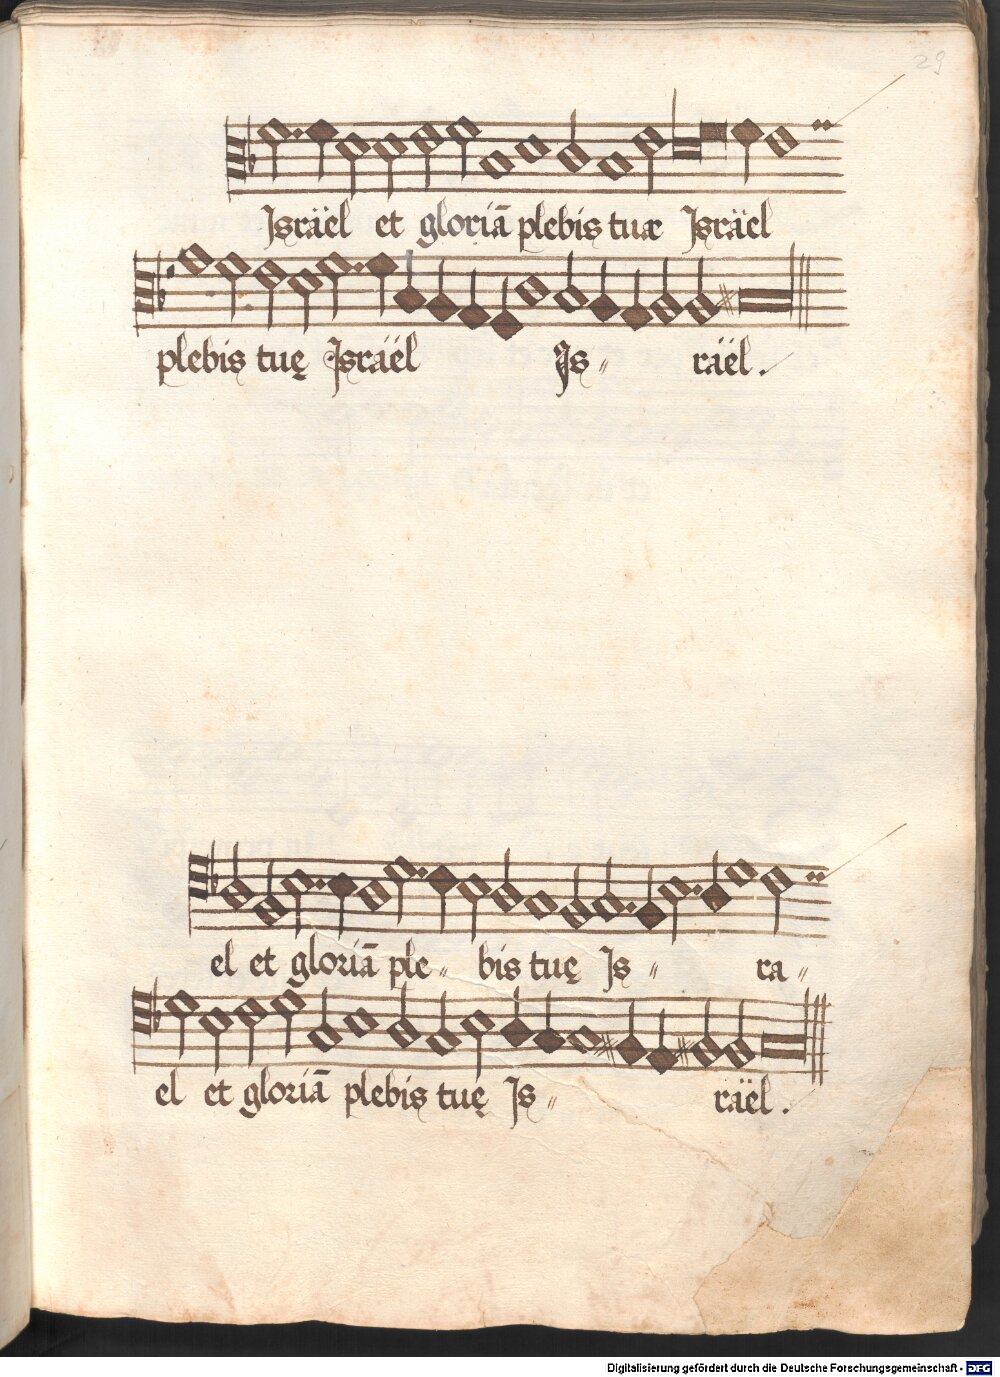 29
Jsräel et gloriā plebis tuæ Jsräel
plebis tuę Jsräel Js〃 räel.
el et gloriā ple〃 bis tuę Js〃 ra〃
el et gloriā plebis tuę Js〃 räel.
Digitalisierung gefördert durch die Deutsche Forschungsgemeinschaft - DFG